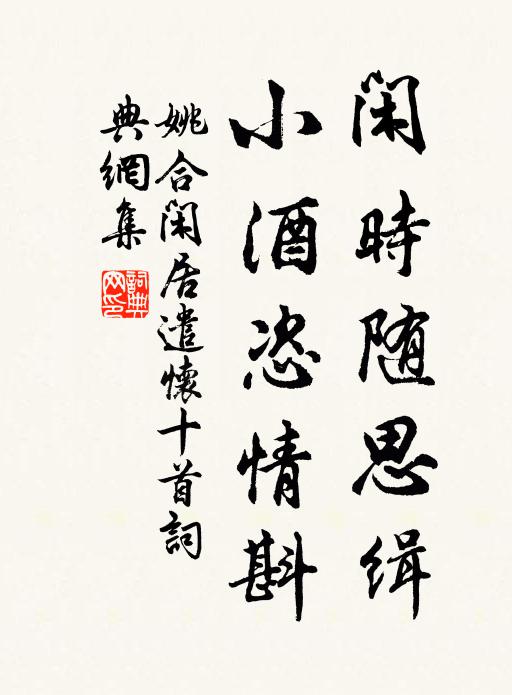 闲時随思缉
小酒恣情斟
姚合闲居遣懷十首詞
典網集
詞典
网印